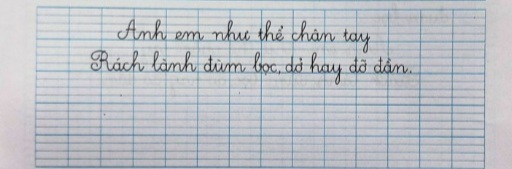 Anh em như thể chân tay
Rách lành đùm bọc, dở hay đỡ đần.